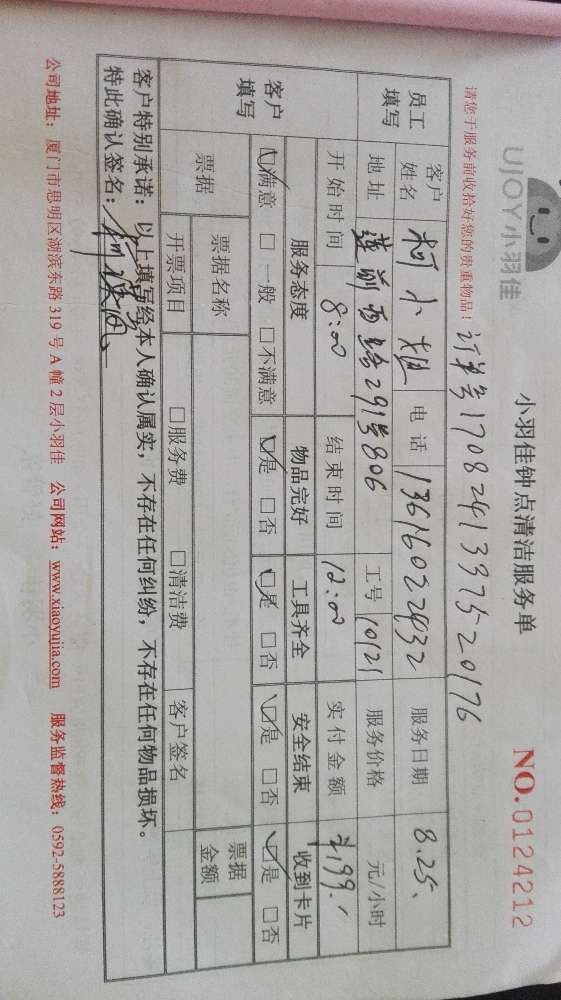 UJOY小羽佳
小羽佳钟点清洁服务单
NO.0124212
请您于服务前收拾好您的贵重物品!
订单号1708241337520176
员工填写 客户姓名 柯小姐 电话 13616022432 服务日期 8.25.
地址 莲前西路291号806 工号 10121 服务价格 元/小时
开始时间 8:00 结束时间 12:00 实付金额 199.
客户填写 服务态度 物品完好 工具齐全 安全结束 收到卡片
☑满意 □一般 □不满意 ☑是 □否 ☑是 □否 ☑是 □否 ☑是 □否
票据 票据名称 票据金额
开票项目 □服务费 □清洁费 客户签名
客户特别承诺:以上填写经本人确认属实,不存在任何纠纷,不存在任何物品损坏。
特此确认签名:
公司地址:厦门市思明区湖滨东路319号A幢2层小羽佳 公司网站:www.xiaoyujia.com 服务监督热线:0592-5888123